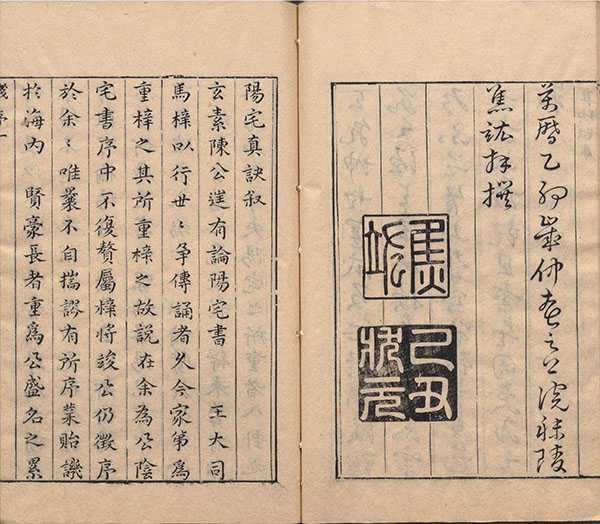 萬曆乙卯歲仲春之上浣秣陵
焦竑拜撰
焦竑
己丑狀元
陽宅真訣叙
玄素陳公有論陽宅書 王大司
馬梓以行世〻爭傳誦者久今家第爲
重梓之其所重梓之故說在余為公陰
宅書序中不復贅屬梓將竣公仍徵序
於余〻唯曩不自揣謬有所序業貽譏
於海內 賢豪長者重爲公盛名之累
序一